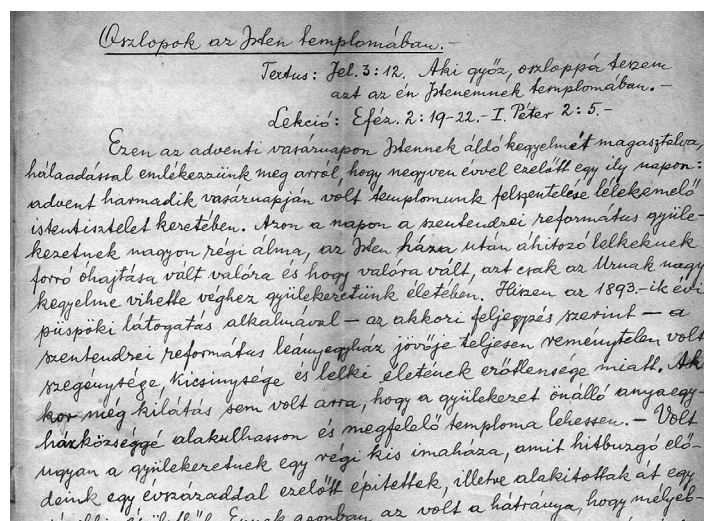 Oszlopok az Isten templomában.-
Textus: Jel. 3:12. Aki győz, oszloppá teszem
azt az én Istenemnek templomában.-
Lekció: Eféz. 2:19-22.- I. Péter 2:5.-
Ezen az adventi vasárnapon Istennek áldó kegyelmét magasztalva,
hálaadással emlékezzünk meg arról, hogy negyven évvel ezelőtt egy ily napon:
advent harmadik vasárnapján volt templomunk felszentelése lélekemelő
istentisztelet keretében. Azon a napon a szentendrei református gyüle-
kezetnek nagyon régi álma, az Isten háza után áhitozó lelkeknek
forró óhajtása vált valóra és hogy valóra vált, azt csak az Urnak nagy
kegyelme vihette véghez gyülekezetünk életében. Hiszen az 1893-ik évi
püspöki látogatás alkalmával – az akkori feljegyzés szerint – a
szentendrei református leányegyház jövője teljesen reménytelen volt
szegénysége, kicsinysége és lelki életének erőtlensége miatt. Ak-
kor még kilátás sem volt arra, hogy a gyülekezet önálló anyaegy-
házközséggé alakulhasson és megfelelő temploma lehessen. – Volt
ugyan a gyülekezetnek egy régi kis imaháza, amit hitbuzgó elő-
deink egy évszázaddal ezelőtt építettek, illetve alakitottak át egy
Ennek azonban az volt a hátránya, hogy mélyeb-